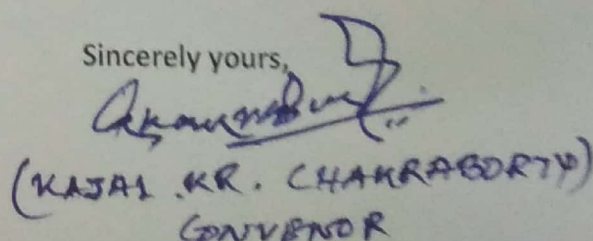 Sincerely yours,
(KAJAL .KR. CHAKRABORTY)
CONVENOR